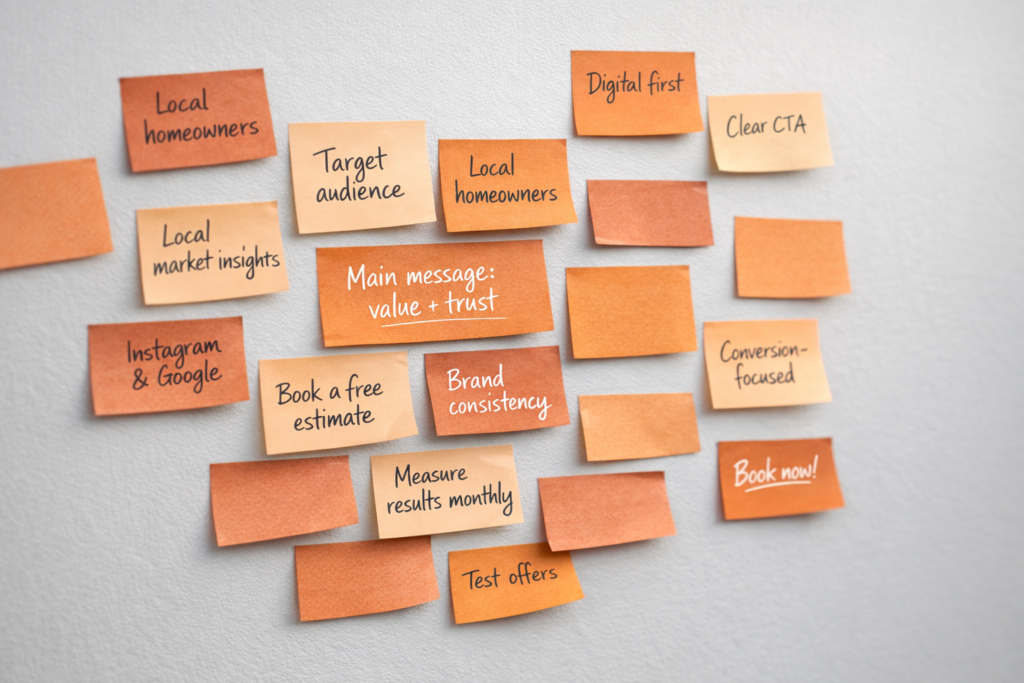 Local
homeowners
Digital first
Clear CTA
Target
audience
Local
homeowners
Local
market insights
Main message:
value + trust
Instagram
& Google
Book a free
estimate
Brand
consistency
Conversion-
focused
Measure
results monthly
Book now!
Test offers